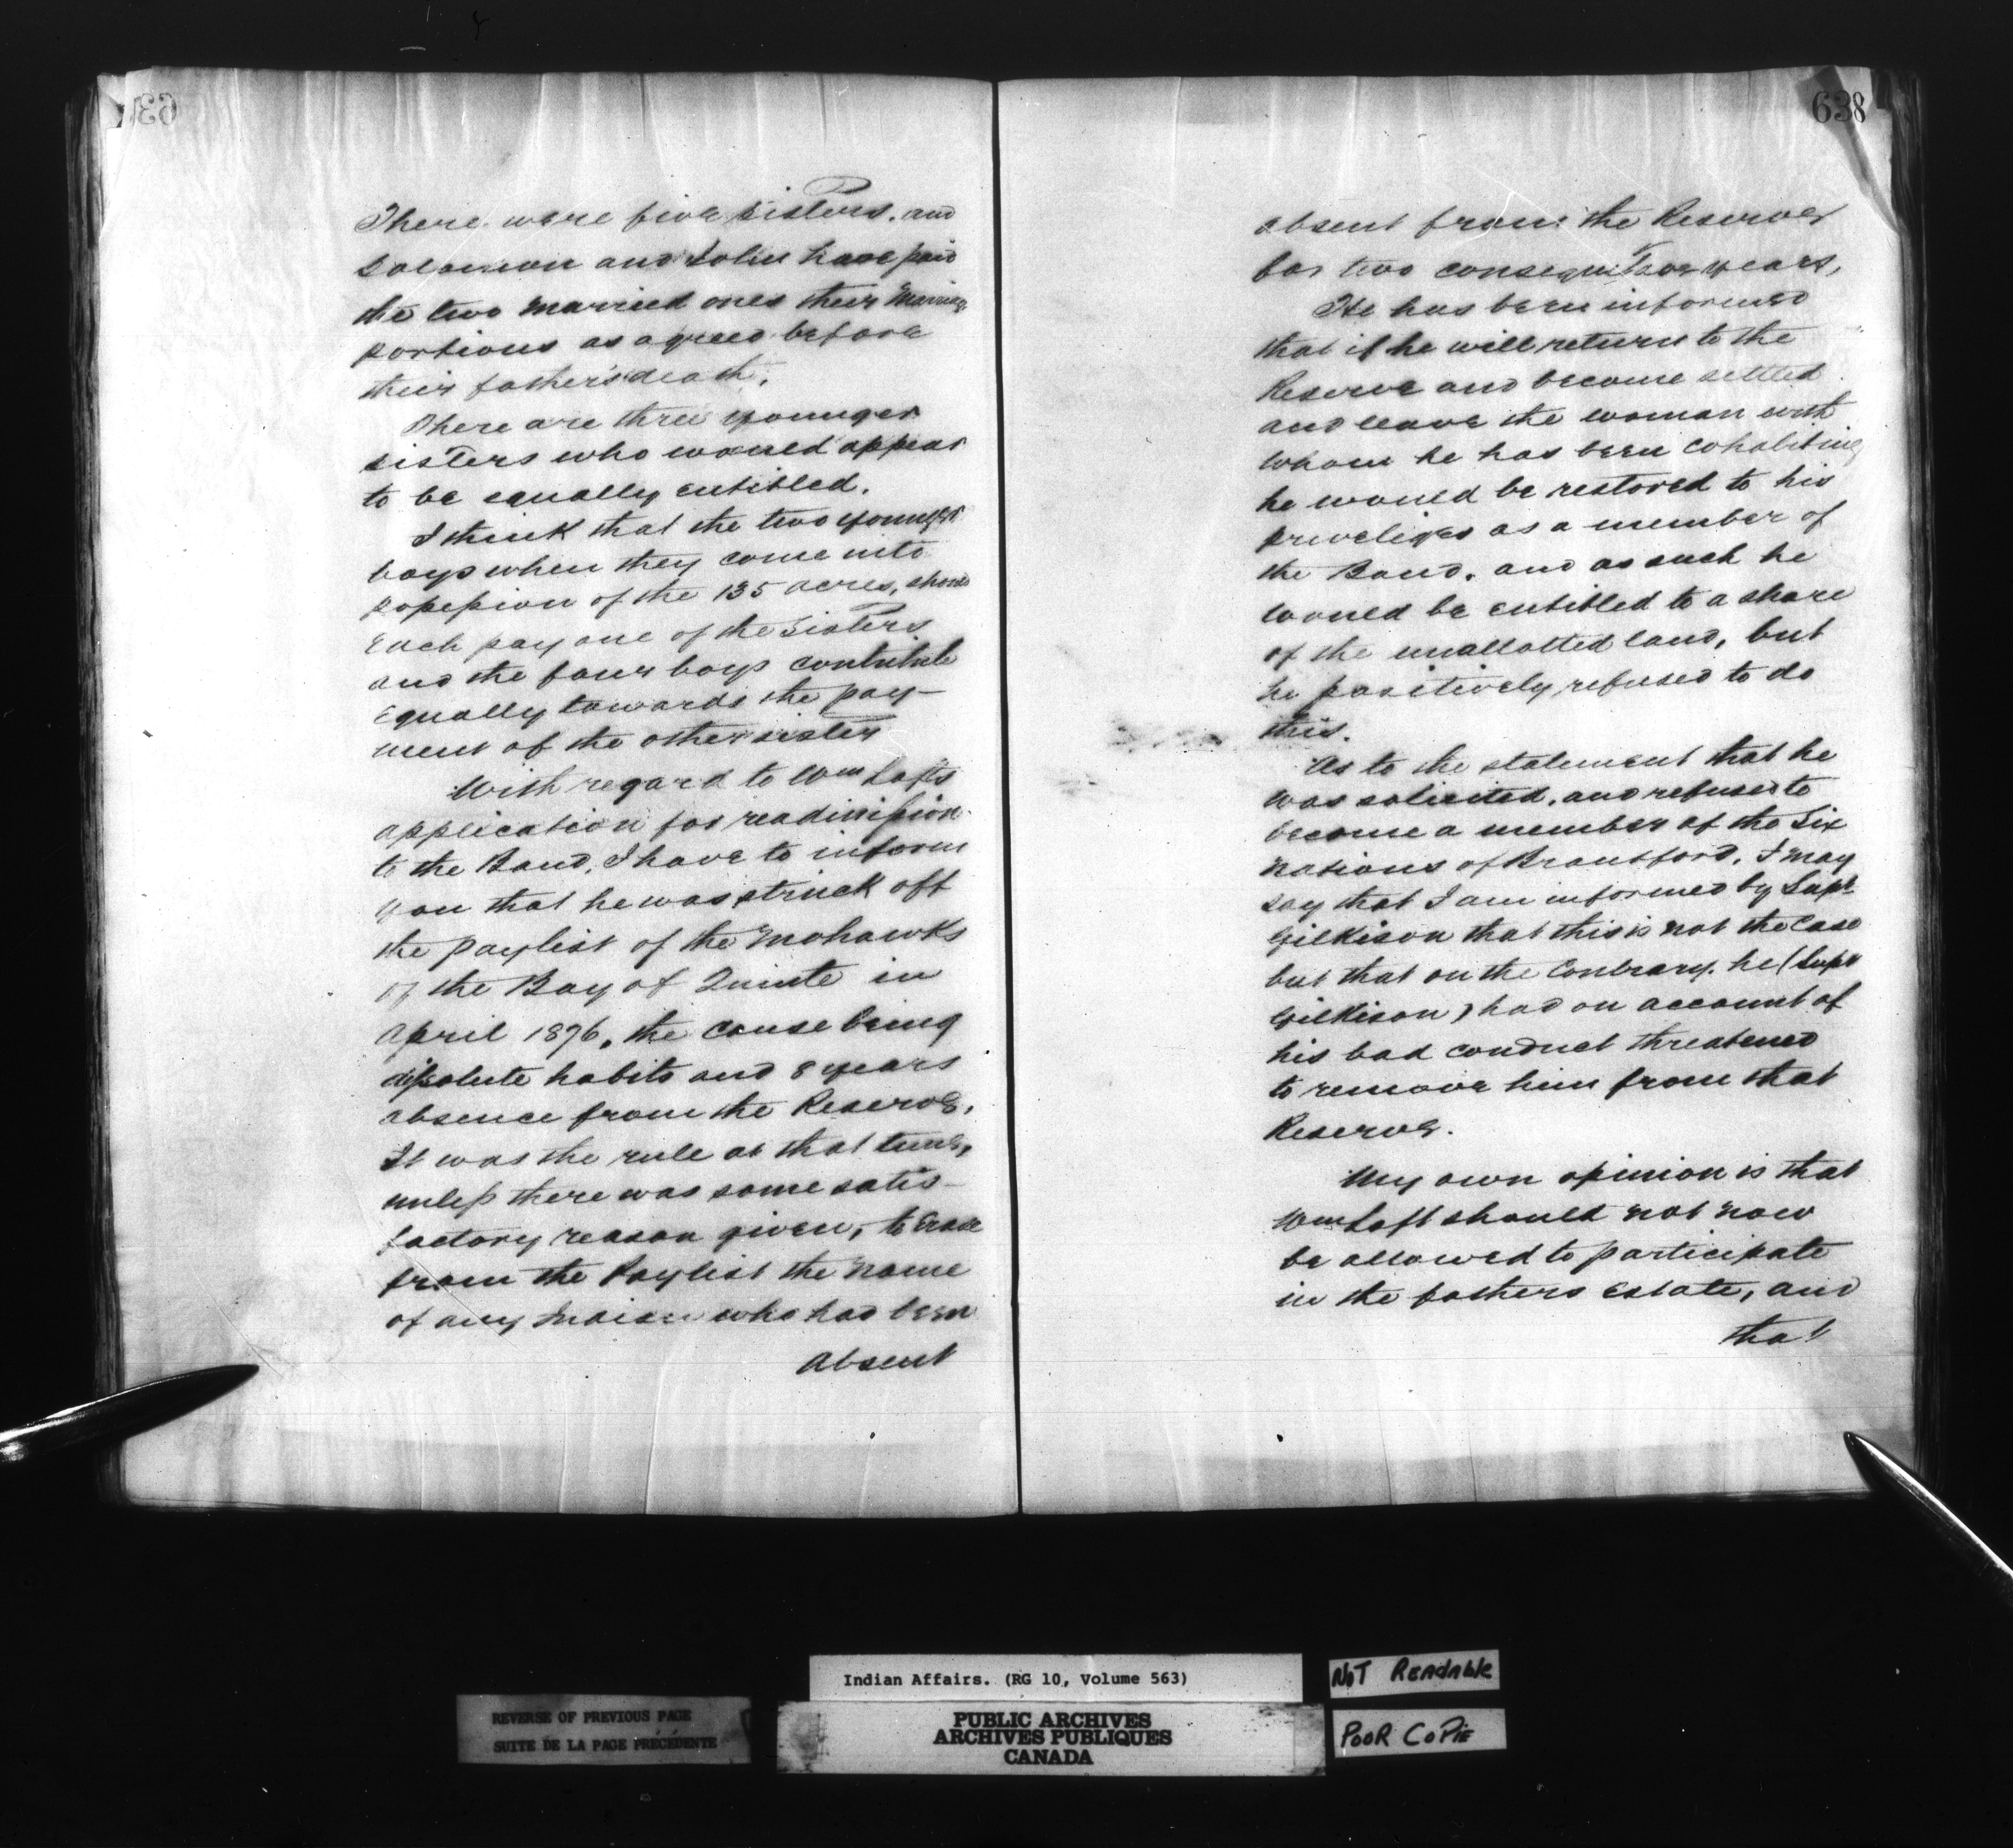 There were five sisters, and
Solomon and John have paid
the two married ones their marriage
portions as agreed before
their father's death.
There are three younger
sisters who would appear
to be equally entitled.
I think that the two younger
boys when they come into
possession of the 135 acres, should
each pay one of the sisters
and the four boys contribute
equally towards the pay-
ment of the other sister
With regard to Wm Lofts
application for readmission
to the Band, I have to inform
you that he was struck off
the paylist of the Mohawks
of the Bay of Quinte in
April 1876, the cause being
dissolute habits and 8 years
absence from the Reserve,
It was the rule at that time,
unless there was some satis-
factory reason given, to erase
from the Paylist the name
of any Indian who had been
absent
638
absent from the Reserve
for two consequitive years,
He has been informed
that if he will return to the
Reserve and become settled
and leave the woman with
whom he has been cohabiting
he would be restored to his
priveliges as a member of
the Band, and as such he
would be entitled to a share
of the unallotted land, but
he positively refused to do
this.
As to the statement that he
was solicited, and refused to
become a member of the Six
Nations of Brantford, I may
say that I am informed by Supt
Gilkison that this is not the case
but that on the contrary, he (Supt
Gilkison) had on account of
his bad conduct threatened
to remove him from that
Reserve.
My own opinion is that
Wm Loft should not now
be allowed to participate
in the fathers Estate, and
that
Indian Affairs. (RG 10, Volume 563)
NOT READABLE
REVERSE OF PREVIOUS PAGE
SUITE DE LA PAGE PRÉCÉDENTE
PUBLIC ARCHIVES
ARCHIVES PUBLIQUES
CANADA
POOR COPIE